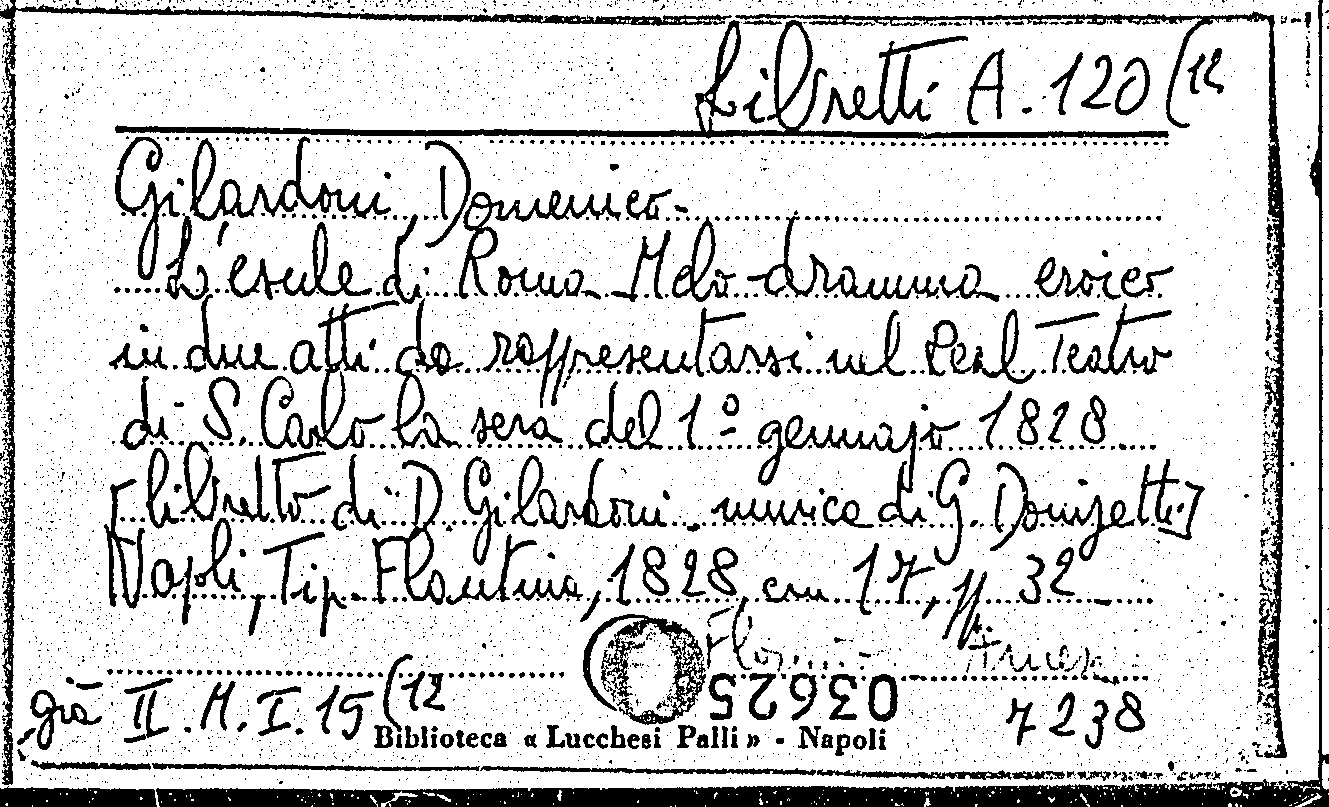 Libretti A. 120 (12
Gilardoni, Domenico-
L'esule di Roma Melo-dramma eroico
in due atti da rappresentarsi nel Real Teatro
di S. Carlo la sera del 1º gennajo 1828.
[libretto di D. Gilardoni. musica di G. Donizetti]
Napoli, Tip. Flautina, 1828, cm 17, pp 32
già II. M. I. 15 (12
03625
7238
Biblioteca « Lucchesi Palli » - Napoli